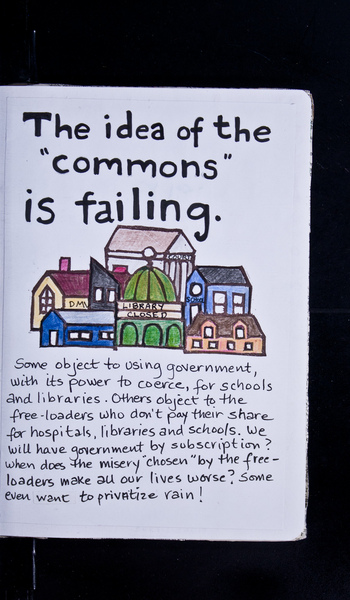 The idea of the
"commons"
is failing.
COURT
DMV
LIBRARY
CLOSED
Some object to using government,
with its power to coerce, for schools
and libraries. Others object to the
free-loaders who don't pay their share
for hospitals, libraries and schools. We
will have government by subscription?
When does the misery "chosen" by the free-
loaders make all our lives worse? Some
even want to privatize rain!